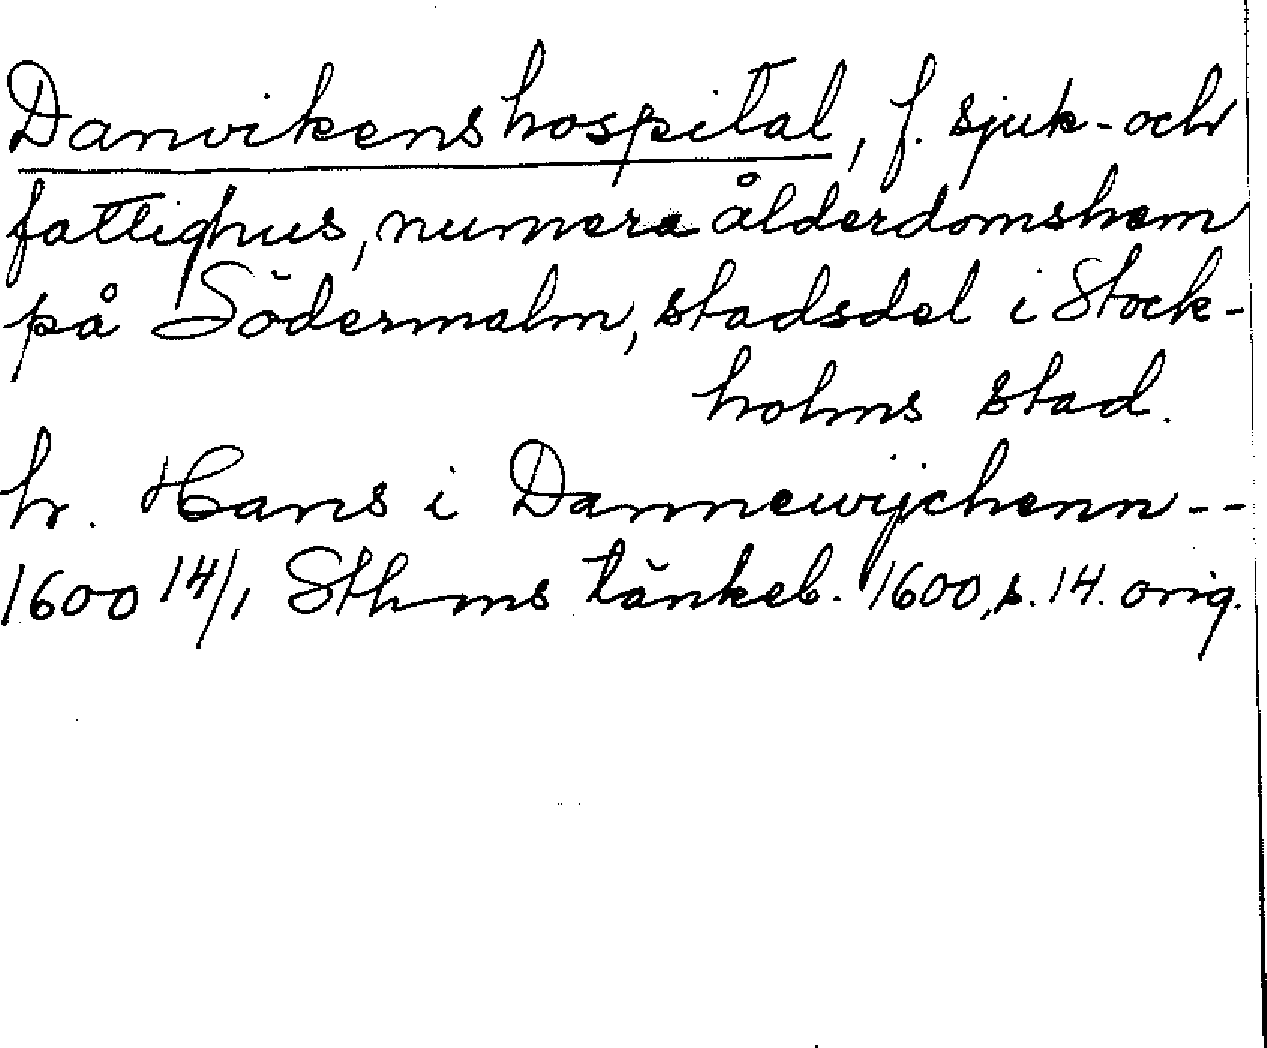 Danvikens hospital, f. sjuk- och
fattighus, numera ålderdomshem
på Södermalm, stadsdel i Stock-
holms stad.
hr. Hans i Dannewijchenn--
1600 14/1 Sthms tänkeb. 1600, s. 14. orig.